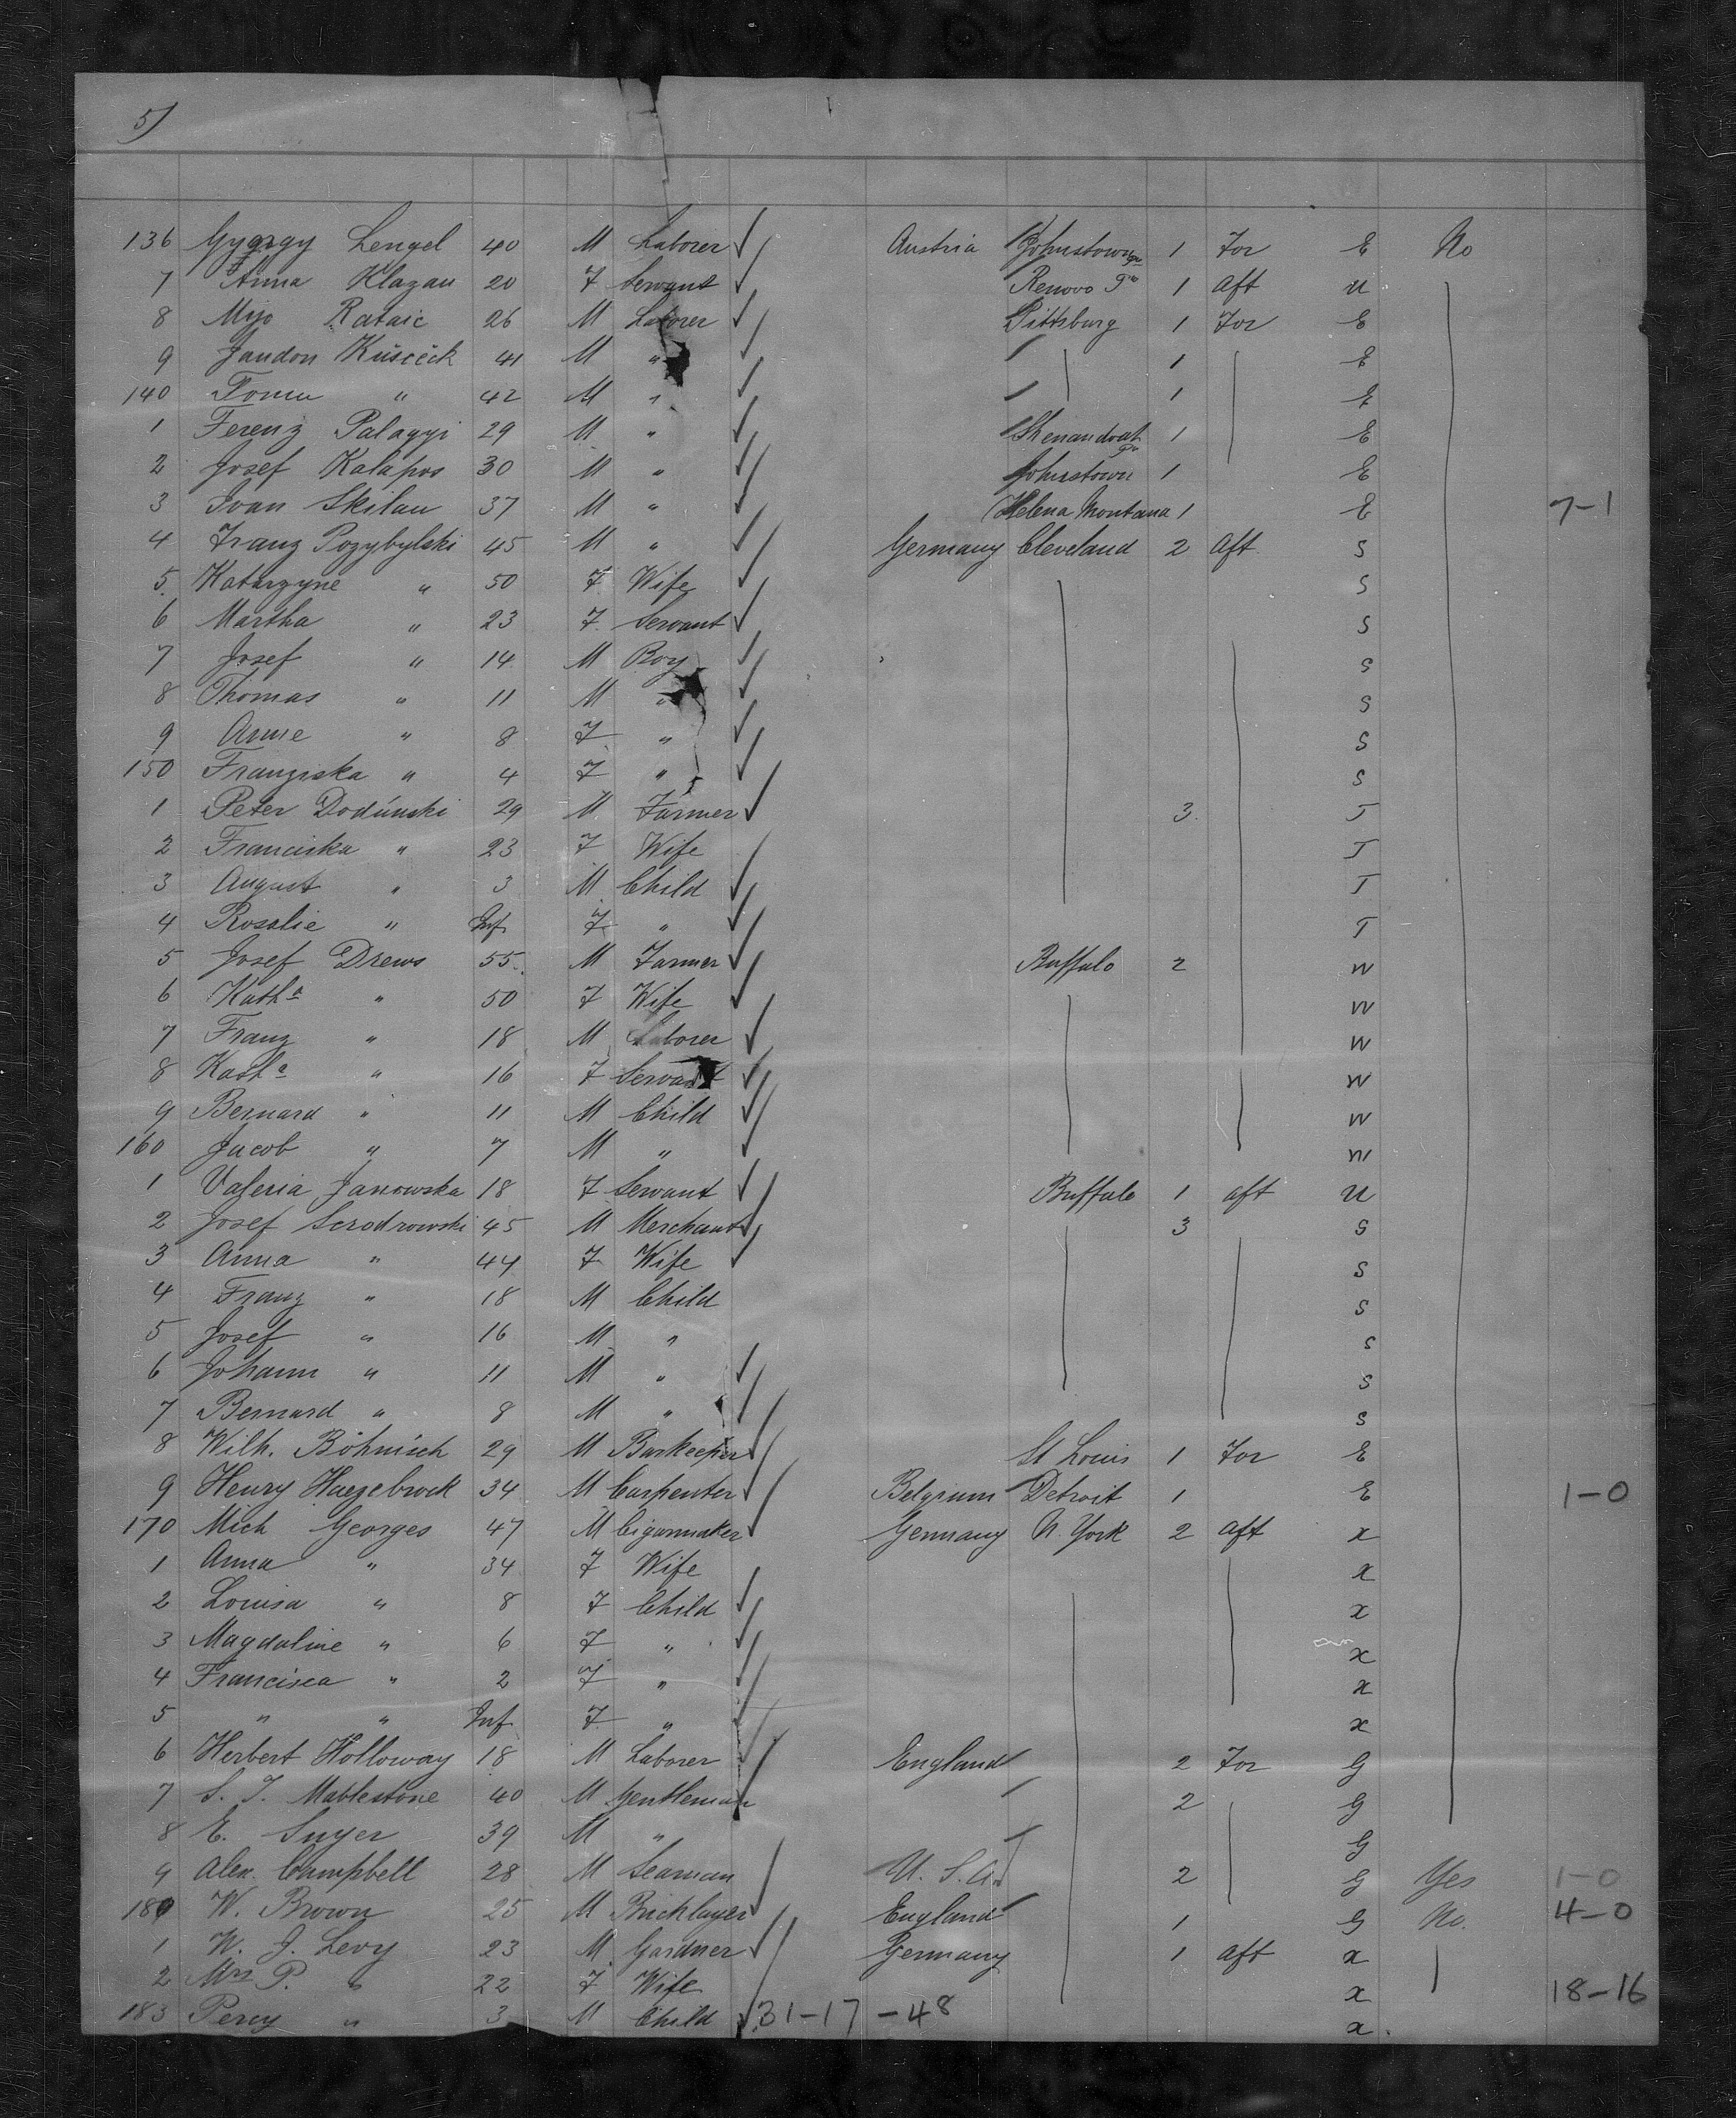 5)
136 Gyorgy Lengel 40 M Laborer Austria Johnstown Pa 1 For E No
7 Anna Klazan 20 F Servant Renovo Pa 1 Aft U
8 Mijo Rataic 26 M Laborer Pittsburg 1 For E
9 Jandon Kuscick 41 M " 1 E
140 Toma " 42 M " 1 E
1 Ferenz Palagyi 29 M " Shenandoah Pa 1 E
2 Josef Kalapos 30 M " Johnstown 1 E
3 Ivan Skilan 37 M " Helena Montana 1 E 7-1
4 Franz Pozybylski 45 M " Germany Cleveland 2 Aft S
5. Katarzyne " 50 F Wife S
6 Martha " 23 F Servant S
7 Josef " 14 M Boy S
8 Thomas " 11 M " S
9 Anne " 8 F " S
150 Franziska " 4 F " S
1 Peter Dodunski 29 M Farmer 3. T
2 Franciska " 23 F Wife T
3 August " 3 M Child T
4 Rosalie " Inf F " T
5 Josef Drews 55. M Farmer Buffalo 2 W
6 Kath.a " 50 F Wife W
7 Franz " 18 M Laborer W
8 Kath.a " 16 F Servant W
9 Bernard " 11 M Child W
160 Jacob " 7 M " W
1 Valeria Janowska 18 F Servant Buffalo 1 aft U
2 Josef Scrodrowski 45 M Merchant 3 S
3 Anna " 44 F Wife S
4 Franz " 18 M Child S
5 Josef " 16 M " S
6 Johann " 11 M " S
7 Bernard " 8 M " S
8 Wilh. Böhnisch 29 M Barkeeper St Louis 1 For E
9 Henry Haezebrock 34 M Carpenter Belgium Detroit 1 E 1-0
170 Mich Georges 47 M Cigarmaker Germany N. York 2 Aft x
1 Anna " 34 F Wife x
2 Louisa " 8 F Child x
3 Magdaline " 6 F " x
4 Francisca " 2 F " x
5 " " Inf F " x
6 Herbert Holloway 18 M Laborer England 2 For G
7 S. T. Mablestone 40 M Gentleman 2 G
8 E. Suyer 39 M " G
9 Alex. Campbell 28 M Seaman U. S. A. 2 G Yes 1-0
180 W. Brown 25 M Bricklayer England 1 G No. 4-0
1 W. J. Levy 23 M Gardner Germany 1 Aft x
2 Mrs P. " 22 F Wife x 18-16
183 Percy " 3 M Child 31-17-48 x.